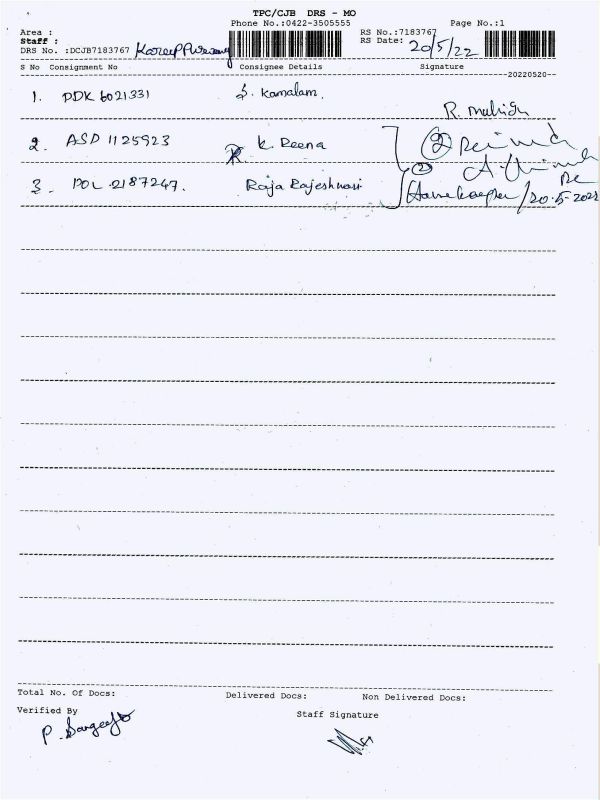 TPC/CJB DRS - MO
Phone No.:0422-3505555 Page No.:1
Area : RS No.:7183767
Staff : RS Date: 20/5/22
DRS No. :DCJB7183767
S No Consignment No Consignee Details Signature
--20220520--
1. PDK 6021331 S. Kamalam.
R.
2. ASD 1125923 K. Reena
3. POL 2187247. Raja Rajeshwari /20-5-2022
Total No. Of Docs: Delivered Docs: Non Delivered Docs:
Verified By Staff Signature
P.